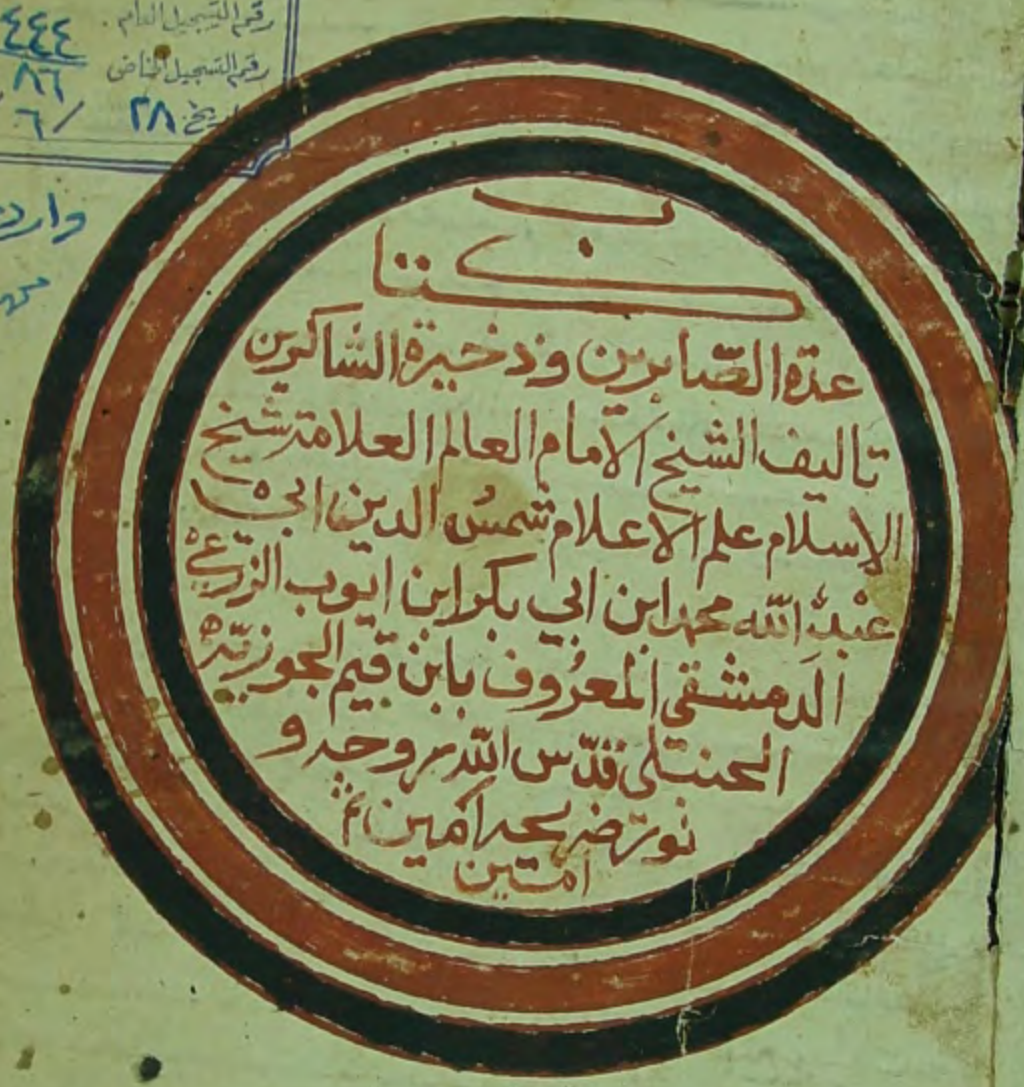 رقم التسجيل العام .
٤٤٤
رقم التسجيل الخاص
٨٦
٢٨ / ٦
وارد
كتاب
عدة الصّابرين وذخيرة الشاكرين
تاليف الشيخ الامام العالم العلامة شيخ
الإسلام علم الاعلام شمسُ الدين ابي
عبد الله محمد ابن ابي بكر ابن ايوب الزرعي
الدمشقي المعرُوف بابن قيم الجوزيّة
الحنبلي قدّس اللّه روحه و
نور ضريحه امين
امين